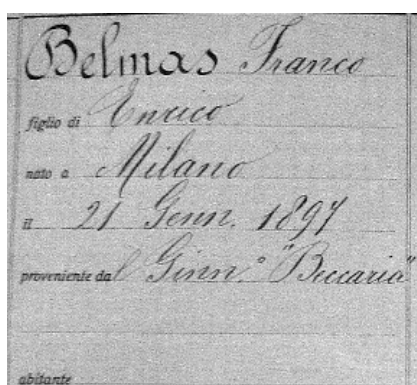 Belmas Franco
figlio di Enrico
nato a Milano
il 21 Genn. 1897
proveniente dal Ginn.° "Beccaria"
abitante